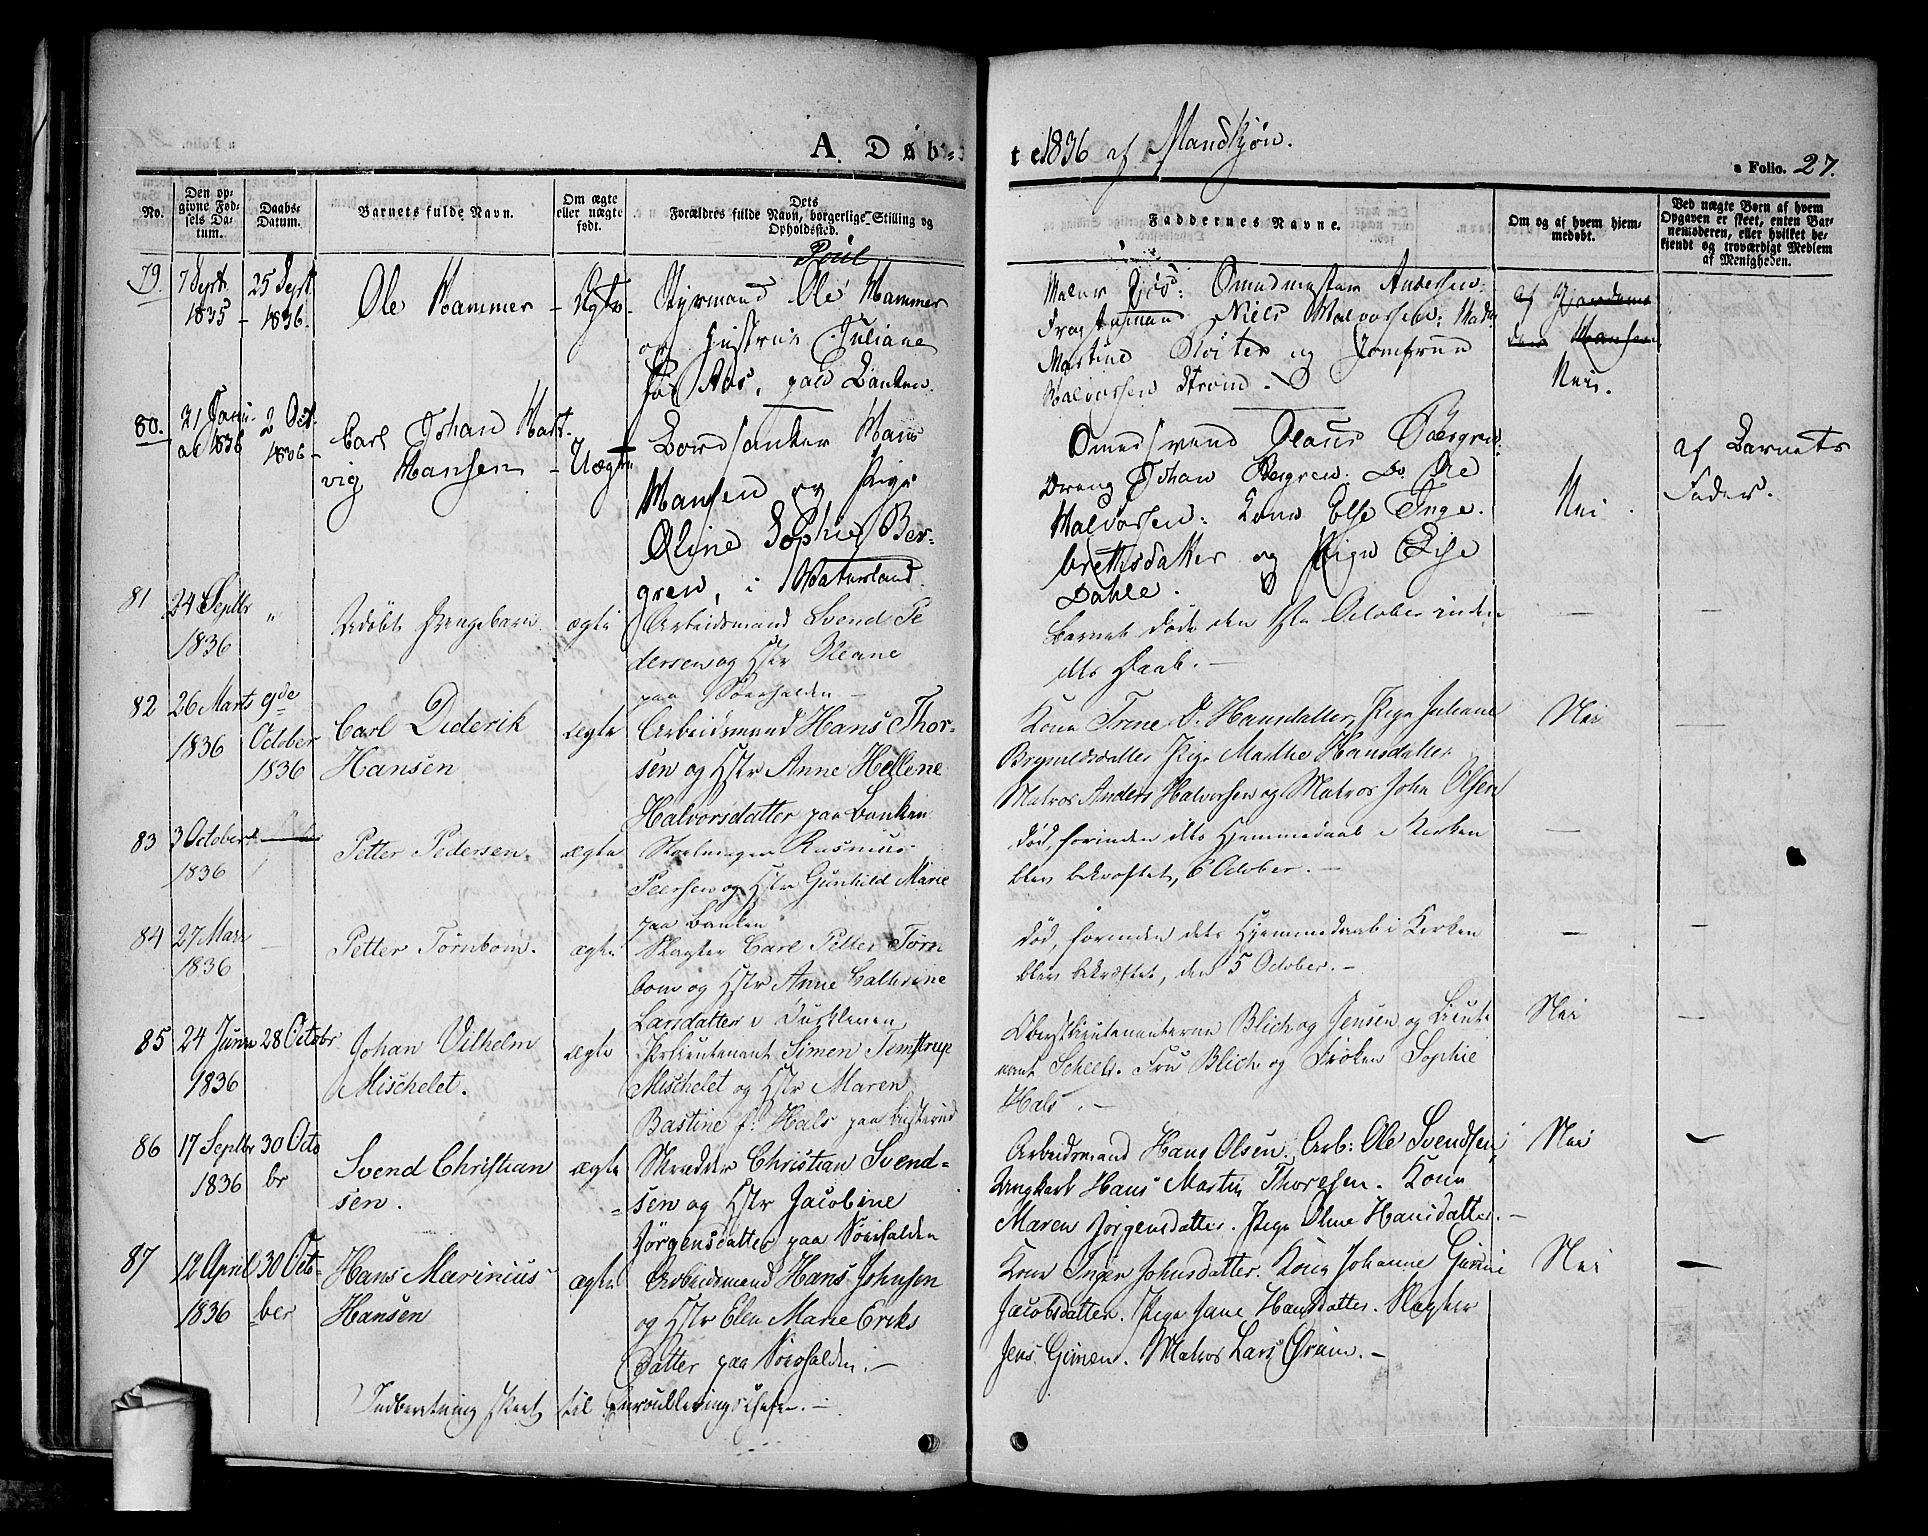 A. Døb-
te 1836 af Mandkjøn.
a Folio. 27.
No.
Den op-
givne Fød-
sels Da-
tum.
Daabs-
Datum.
Barnets fulde Navn.
Om ægte
eller uægte
født.
Forældres fulde Navn, borgerlige Stilling og
Dets
Opholdssted.
Faddernes Navne.
Om og af hvem hjem-
medøbt.
Ved uægte Børn af hvem
Opgaven er skeet, enten Bar-
nemoderen, eller hvilket be-
kjendt og troværdigt Medlem
af Menigheden.
79. 7 Sept 25 Sept
1835 1836.
Ole Hammer - Ægte
Poul
Styrmand Ole Hammer
og Hustrue Juliane
født Aas, paa Banken.
Omedmester Andersen.
Niels Halvorsen: Mad.
Martine og Jomfrue
Halvorsen Strøm.
af
Hansen
Nei.
80. 31 Janu- 2 Oct.
ar 1836 1836
Carl Johan Hart-
vig Hansen - Uægte
Hans
Hansen og Pige
Oline Sophie Ber-
gren, i Waterland.
Svend Olaus Bergren
Dreng Johan Bergren. Do. Ole
Halvorsen: Kone Else Inge-
brethsdatter og Pige Lise
Dahle.
Nei.
af Barnets
Fader.
81 24 Septbr "
1836
Udøbt Drengebarn. ægte
Arbeidsmand Svend Pe
dersen og Hstr Oleane
paa
Barnet døde den October inden
dets Daab. -
82 26 Marts 9de
1836 October
1836
Carl Diderik
Hansen
ægte
Arbeidsmand Hans Thor-
sen og Hstr Anne Hellene
Halvorsdatter paa Banken
Kone Trine D. Hansdatter, Pige Juliane
Brynildsdatter Pige Marthe Hansdatter
Matros Anders Halvorsen og Matros John Olsen
Nei
83 3 October
1836
Petter Pedersen.
ægte
Rasmus
Peersen og Hstr Gunhild Marie
paa Banken
død, forinden dets Hjemmedaab i Kirken
blev bekræftet, 6 October. -
84 27 Mars
1836
Petter Törnbom.
ægte
Slagter Carl Petter Törn
bom og Hstr Anne Cathrine
Larsdatter i
død, forinden dets Hjemmedaab i Kirken
blev bekræftet, den 5 October. -
85 24 Juni 28 Octobr
1836
Johan Vilhelm
Mischelet.
ægte
Pr: Lieutenant Simen Temstrup
Mischelet og Hstr Maren
Bastine f. Hals paa
Oberstlieutenanterne Blich og Jensen og Lieute
nant Scheel. Fru Blich og Frøken Sophie
Hals. -
Nei
86 17 Septbr 30 Octo
1836 br
Svend Christian
sen.
ægte
Skrædder Christian Svend-
sen og Hstr Jacobine
Jörgensdatter paa
Arbeidsmand Hans Olsen. Arb: Ole Svendsen,
Ungkarl Hans Martin Thoresen. Kone
Maren Jörgensdatter. Pige Oline Hansdatter. -
Nei
87 12 April 30 Octo-
1836 ber
Hans Marinius
Hansen
ægte
Arbeidsmand Hans Johnsen
og Hstr Elen Marie Eriks
datter paa
Kone Inger Johnsdatter. Kone Johanne
Jacobsdatter. Pige Jane Hansdatter. Slagter
Jens Gimen. Matros Lars Örum. -
Nei
Indberetning skeet til